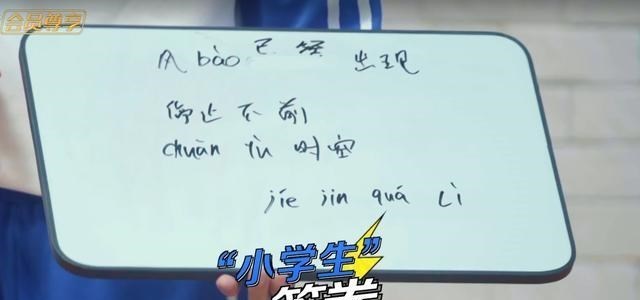 会员尊享
风bào已经出现
停止不前
chuān yù时空
jíe jìn quá Lì
“小学生”
答卷